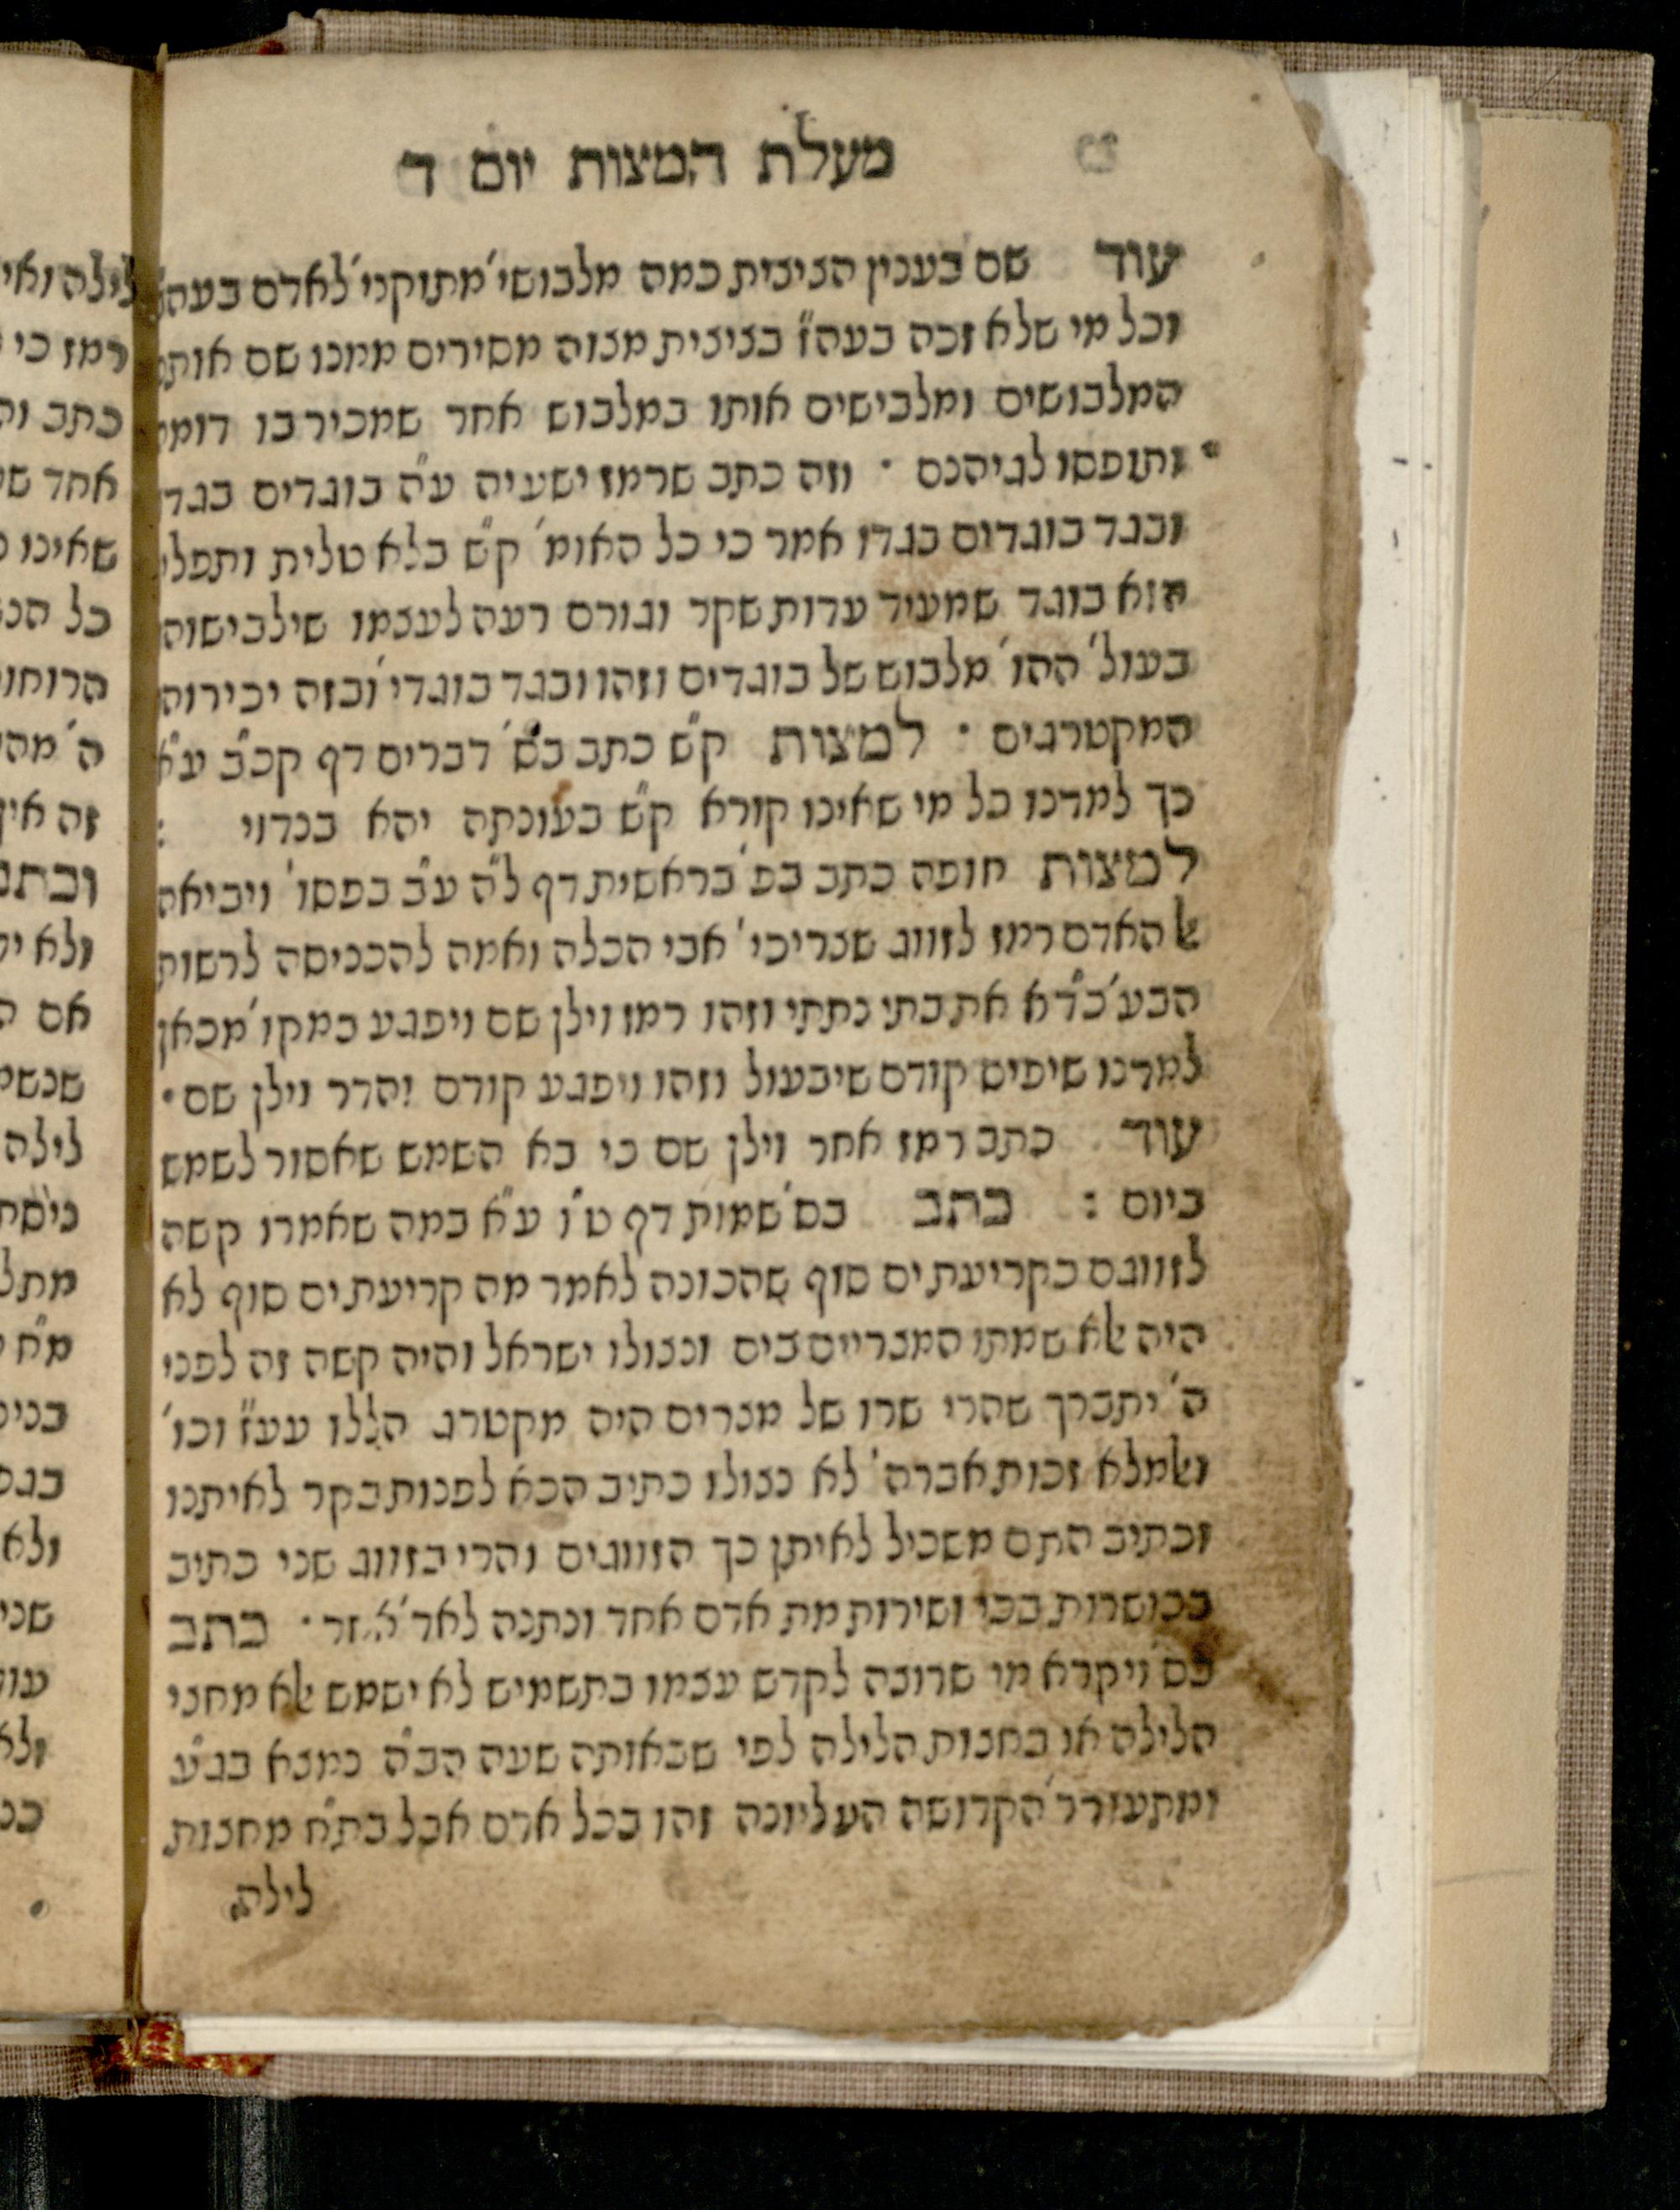 מעלת המצות יום ד
עוד שם בענין הציצית כמה מלבושי' מתוקני' לאדם בעה"ז
וכל מי שלא זכה בעה"ז בציצית מצוה מסירים ממנו שם אותם
המלבושים ומלבישים אותו במלבוש אחד שמכיר בו דומה
ותופסו לגיהנם · וזה כתב שרמז ישעיה ע"ה בוגדים בגדו
ובגד בוגדים בגדו אמר כי כל האומ' ק"ש בלא טלית ותפלי
הוא בוגד שמעיד עדות שקר וגורם רעה לעצמו שילבישוהו
בעול' ההו' מלבוש של בוגדים וזהו ובגד בוגדי' ובזה יכירוהו
המקטרגים · למצות ק"ש כתב בס' דברים דף קכ"ב ע"א
כך למדנו כל מי שאינו קורא ק"ש בעונתה יהא בנדוי :
למצות חופה כתב בפ' בראשית דף ל"ה ע"ב בפסו' ויביאה
אל האדם רמז לזווג שצריכי' אבי הכלה ואמה להכניסה לרשות
הבע' כד"א את בתי נתתי וזהו רמז וילן שם ויפגע במקו' מכאן
למדנו שיפייס קודם שיבעול וזהו ויפגע קודם והדר וילן שם ·
עוד כתב רמז אחר וילן שם כי בא השמש שאסור לשמש
ביום : כתב בס' שמות דף ט"ו ע"א במה שאמרו קשה
לזווגם כקריעת ים סוף שהכונה לאמר מה קריעת ים סוף לא
היה אלא שמתו המצריים בים ונצולו ישראל והיה קשה זה לפני
ה' יתברך שהרי שרו של מצרים היה מקטרג הללו עע"ז וכו'
ואלמלא זכות אברה' לא נצולו כתיב הכא לפנות בקר לאיתנו
וכתיב התם משכיל לאיתן כך הזווגים והרי בזווג שני כתיב
בכושרות בכי ושירות מת אדם אחד ונתנה לאד' אחר · כתב
בס' ויקרא מי שרוצה לקדש עצמו בתשמיש לא ישמש אלא מחצי
הלילה או בחצות הלילה לפי שבאותה שעה הב"ה נמצא בג"ע
ומתעורר' הקדושה העליונה זהו בכל אדם אבל בת"ח מחצות
לילה